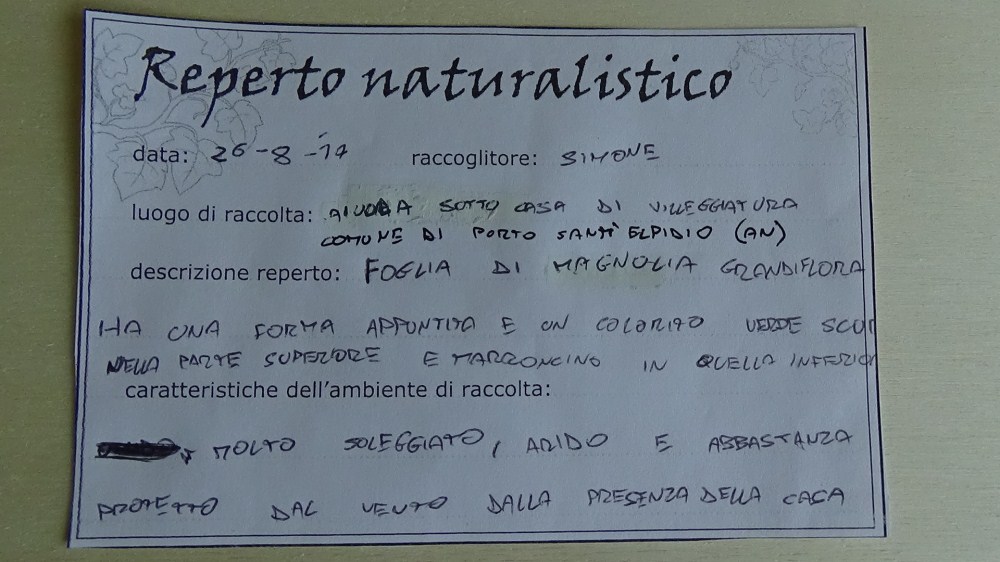 Reperto naturalistico
data: 26-8-17 raccoglitore: SIMONE
luogo di raccolta: AIUOLA SOTTO CASA DI VILLEGGIATURA
COMUNE DI PORTO SANT'ELPIDIO (AN)
descrizione reperto: FOGLIA DI MAGNOLIA GRANDIFLORA
HA UNA FORMA APPUNTITA E UN COLORITO VERDE SCUR
NELLA PARTE SUPERIORE E MARRONCINO IN QUELLA INFERIOR
caratteristiche dell'ambiente di raccolta:
MOLTO SOLEGGIATO, ARIDO E ABBASTANZA
PROTETTO DAL VENTO DALLA PRESENZA DELLA CASA